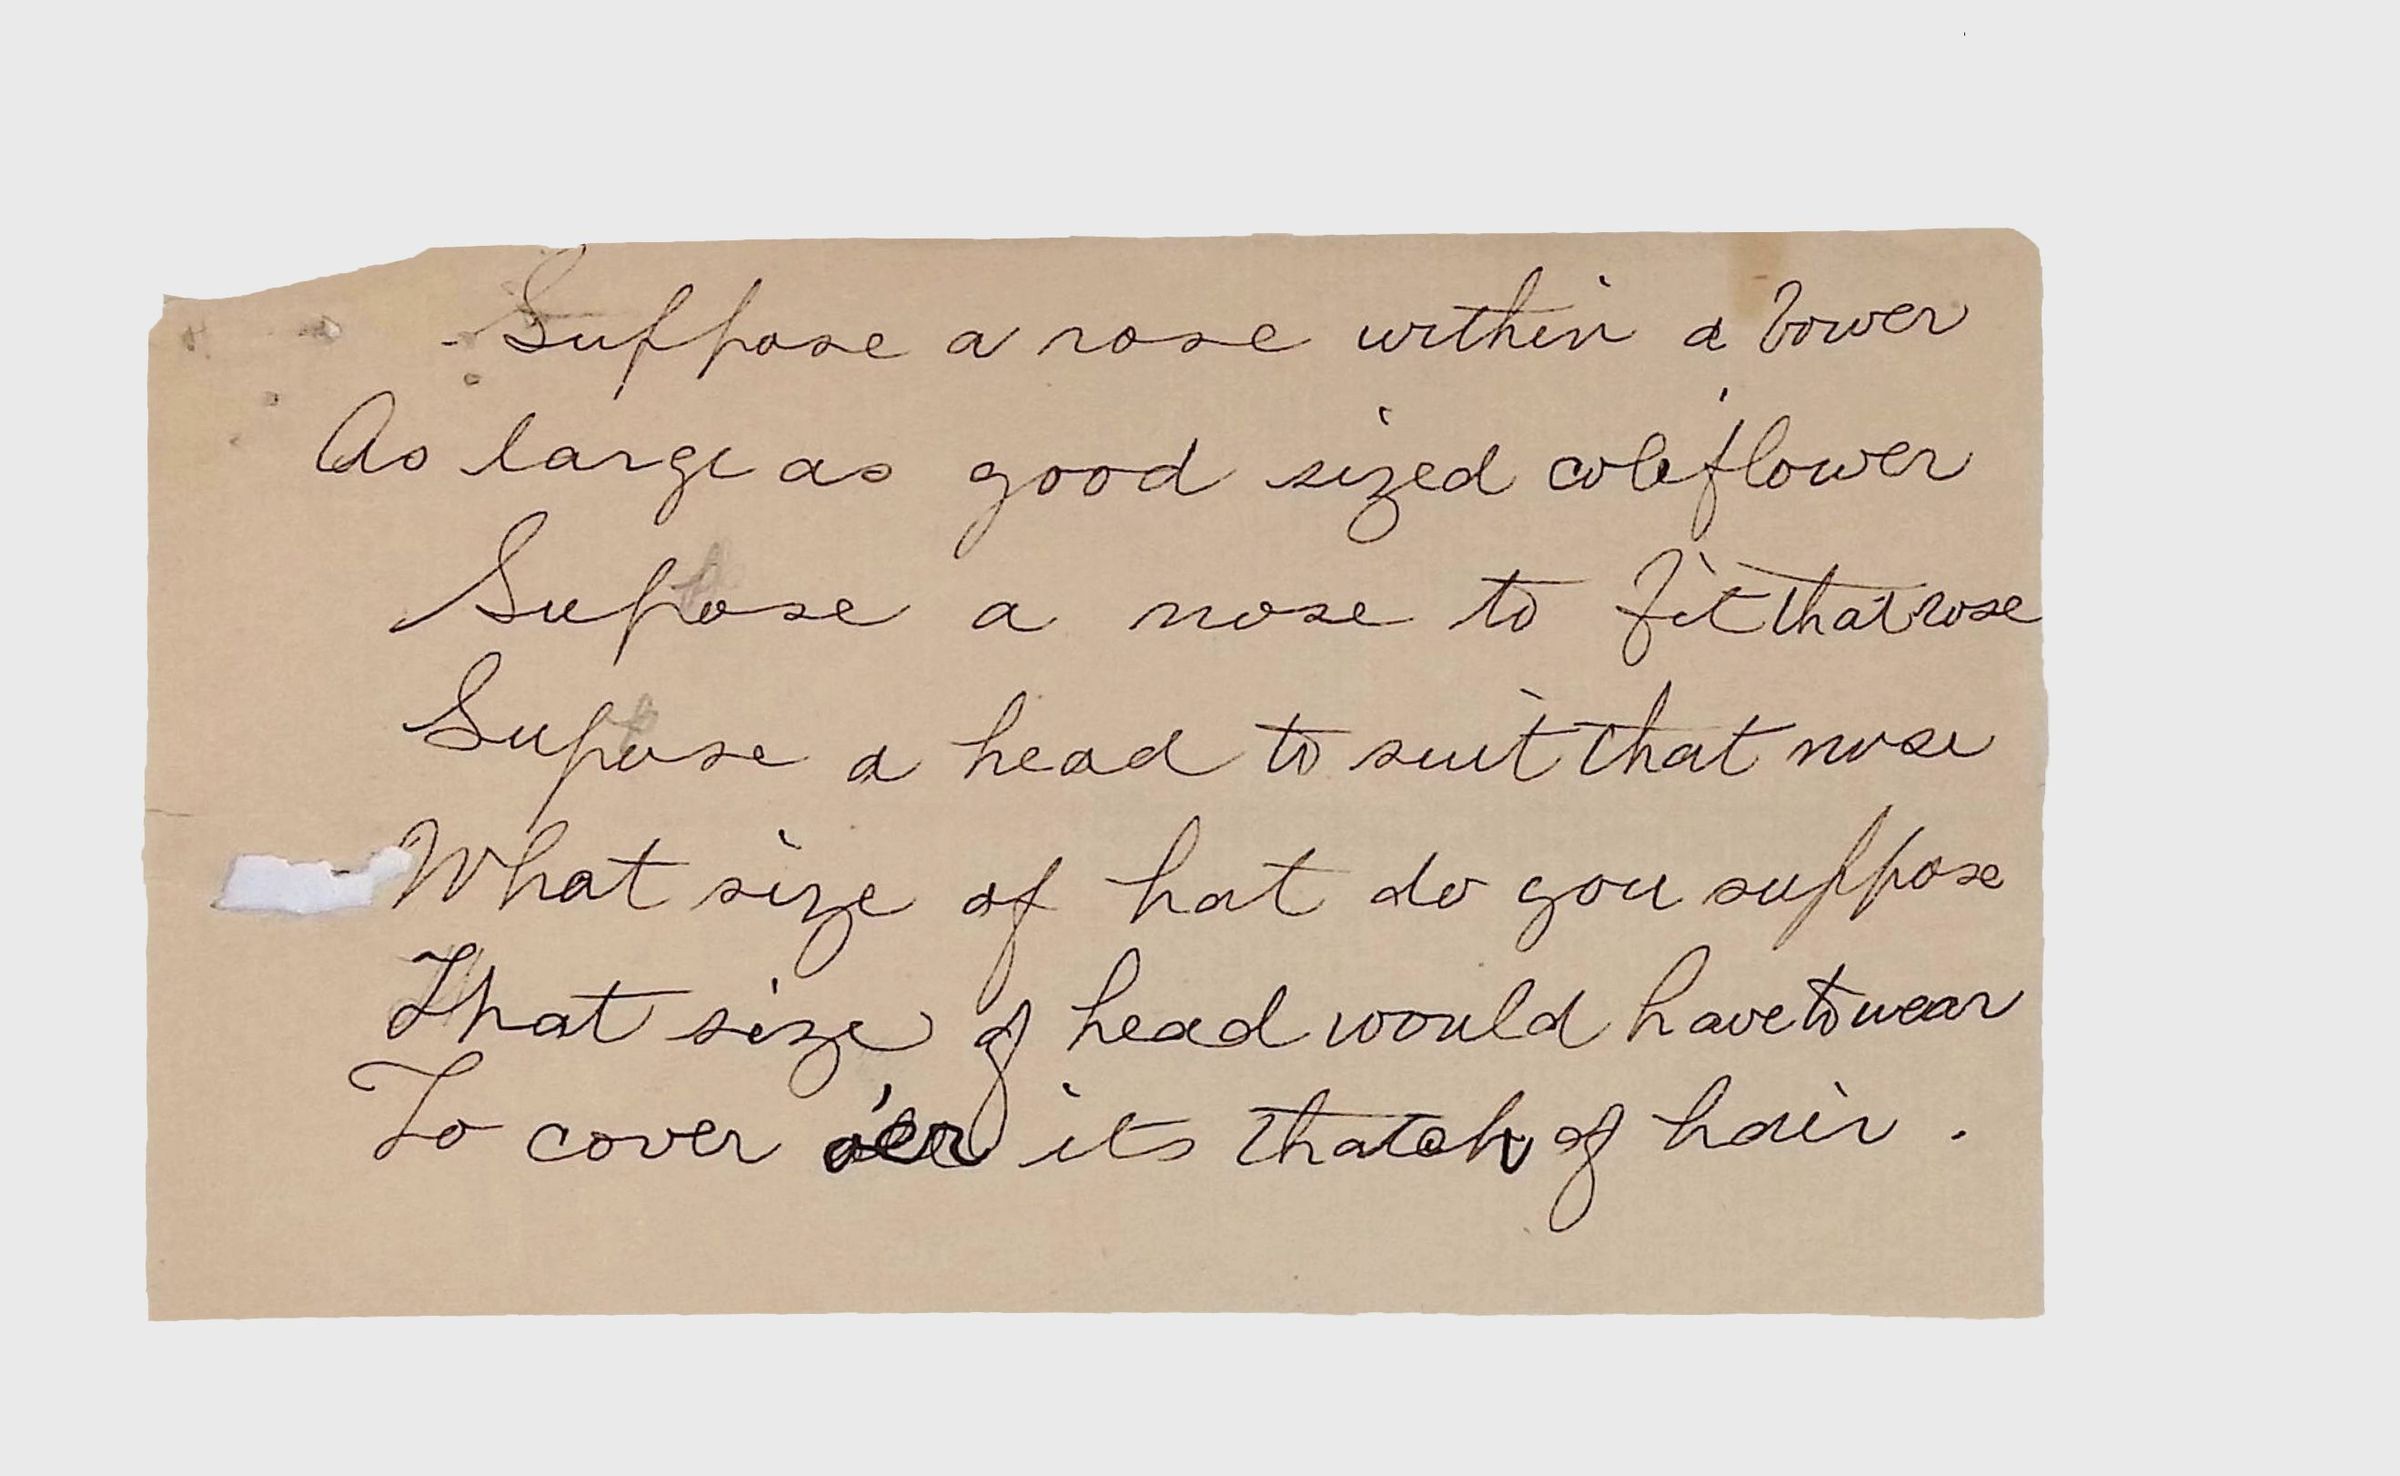 Suppose a rose within a bower
As large as good sized coleflower
Supose a nose to fit that rose
Supose a head to suit that nose
What size of hat do you suppose
That size of head would have to wear
To cover o'er its thatch of hair.